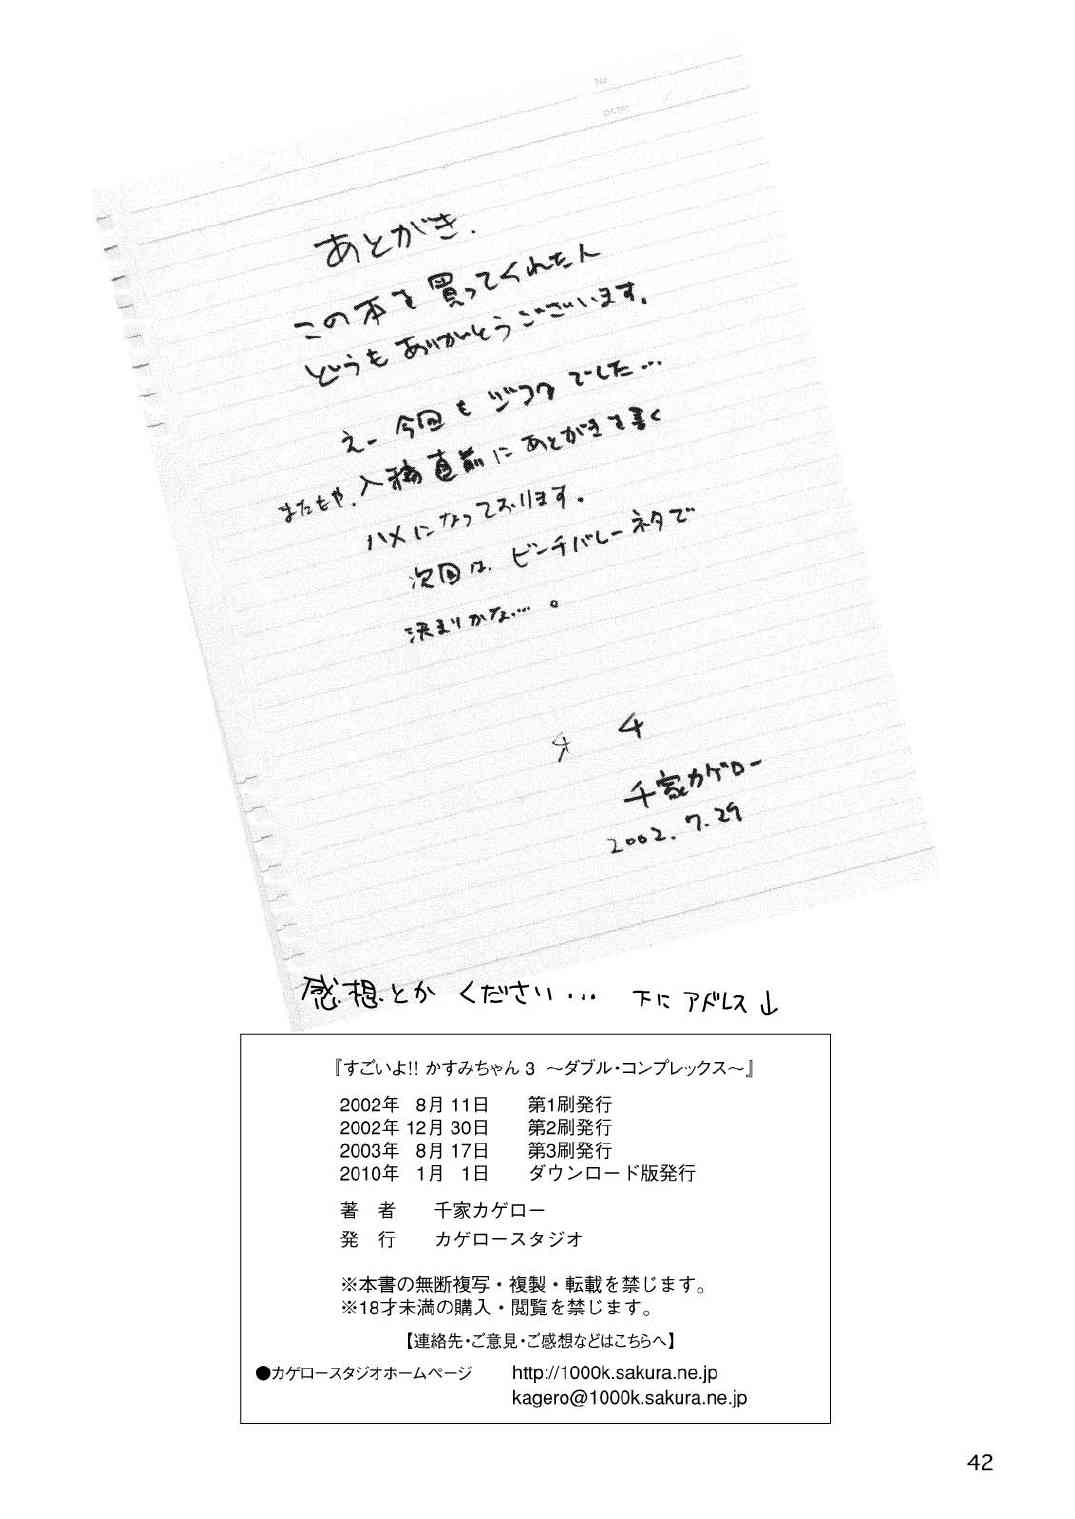 あとがき.
この本を買ってくれた人
どうもありがとうございます。
えー今回もヅフロでした…
またもや、入稿直前にあとがきを書く
ハメになっております。
次回は、ビーチバレーネタで
決まりかな…。
千家カゲロー
2002.7.29
感想とか ください… 下に アドレス↓
『すごいよ!! かすみちゃん 3 ～ダブル・コンプレックス～』
2002年 8月 11日 第1刷発行
2002年 12月 30日 第2刷発行
2003年 8月 17日 第3刷発行
2010年 1月 1日 ダウンロード版発行
著 者 千家カゲロー
発 行 カゲロースタジオ
※本書の無断複写・複製・転載を禁じます。
※18才未満の購入・閲覧を禁じます。
【連絡先・ご意見・ご感想などはこちらへ】
●カゲロースタジオホームページ http://1000k.sakura.ne.jp
kagero@1000k.sakura.ne.jp
42